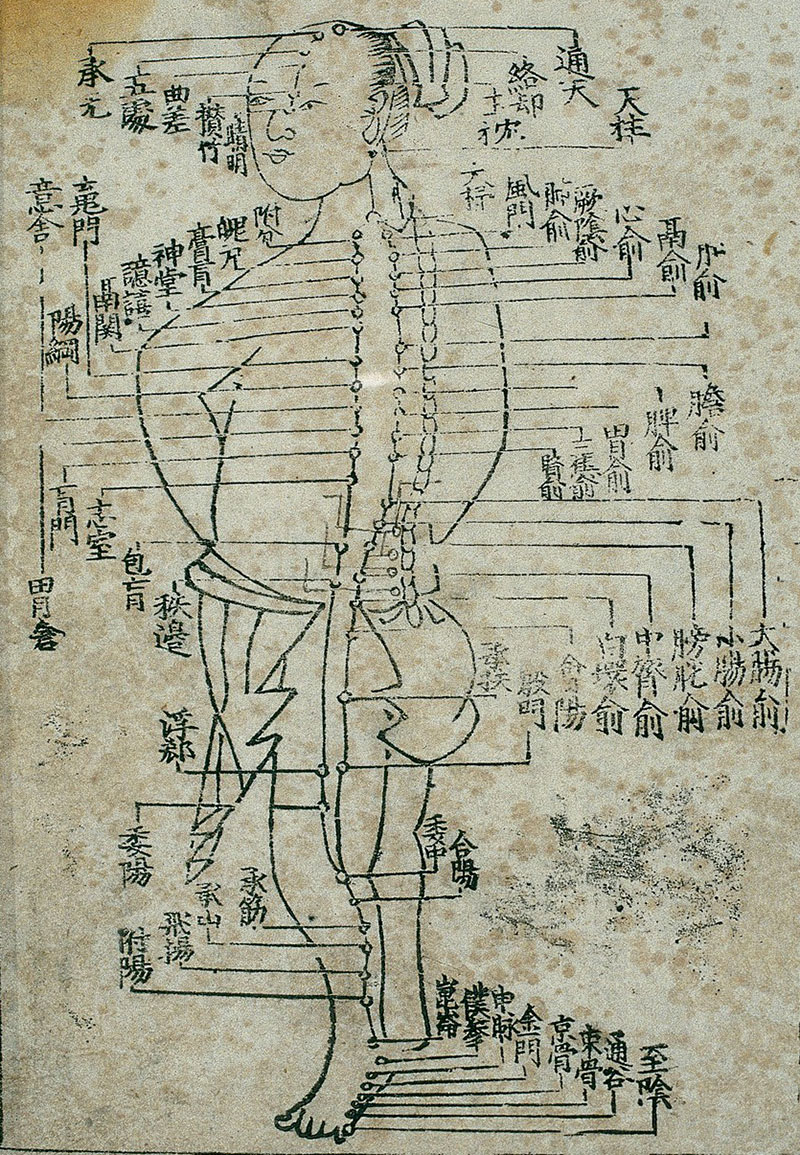 通天
絡却
玉枕
天柱
承光
五處
曲差
攅竹
睛明
大杼
風門
肺俞
厥陰俞
心俞
鬲俞
肝俞
附分
魄户
膏肓
神堂
譩譆
鬲関
䰟門
陽綱
意舎
膽俞
脾俞
胃俞
三焦俞
腎俞
肓門
志室
胃倉
包肓
秩邊
大腸俞
小腸俞
膀胱俞
中膂俞
白環俞
會陽
承扶
殷門
浮郄
委陽
委中
合陽
承筋
承山
飛揚
附陽
崑崙
僕參
申脉
金門
京骨
束骨
通谷
至陰